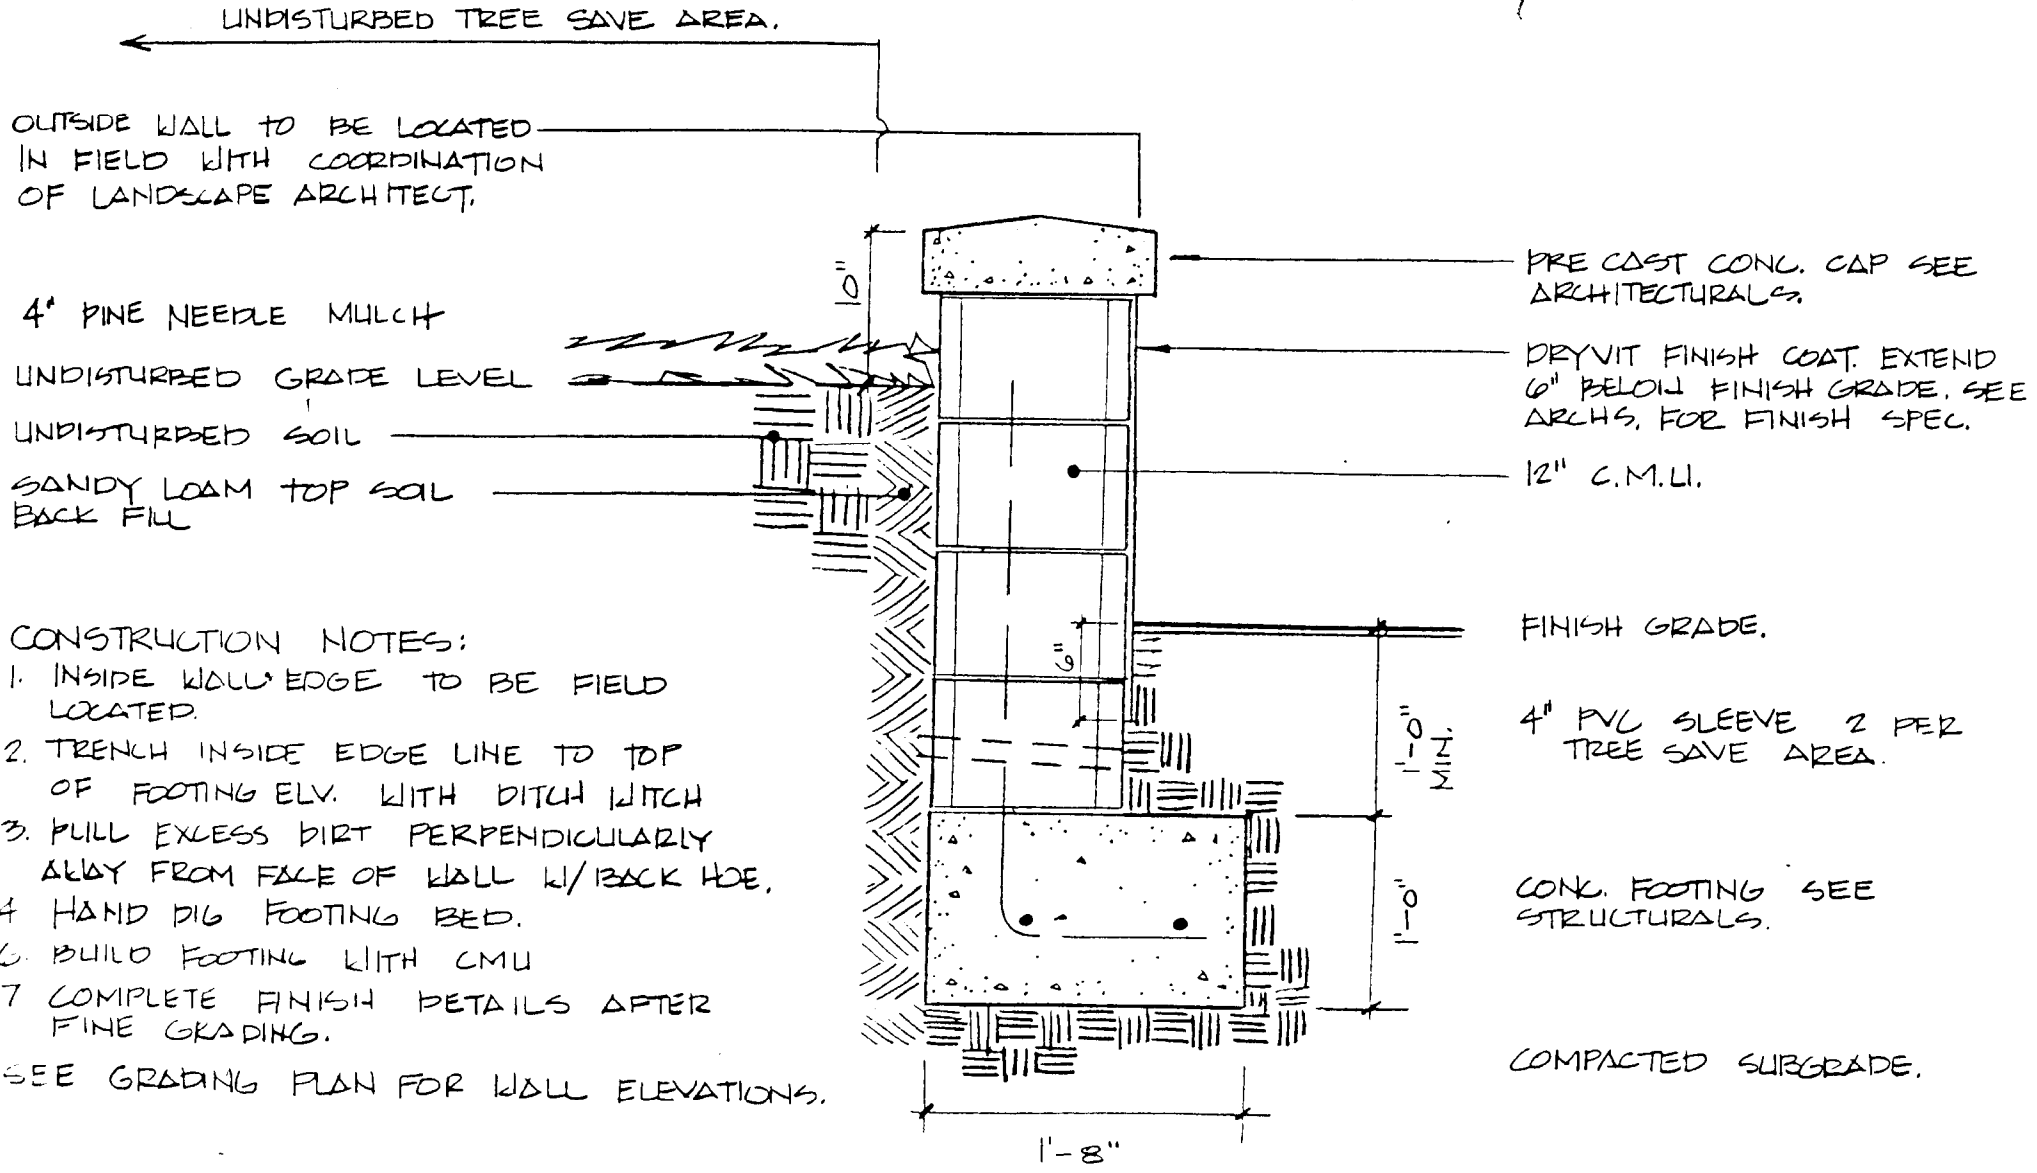 UNDISTURBED TREE SAVE AREA.
OUTSIDE WALL TO BE LOCATED
IN FIELD WITH COORDINATION
OF LANDSCAPE ARCHITECT.
10"
4" PINE NEEDLE MULCH
UNDISTURBED GRADE LEVEL
UNDISTURBED SOIL
SANDY LOAM TOP SOIL
BACK FILL
CONSTRUCTION NOTES:
1. INSIDE WALL EDGE TO BE FIELD
LOCATED.
2. TRENCH INSIDE EDGE LINE TO TOP
OF FOOTING ELV. WITH DITCH WITCH
3. PULL EXCESS DIRT PERPENDICULARLY
AWAY FROM FACE OF WALL W/BACK HOE.
4 HAND DIG FOOTING BED.
6. BUILD FOOTING WITH CMU
7 COMPLETE FINISH DETAILS AFTER
FINE GRADING.
SEE GRADING PLAN FOR WALL ELEVATIONS.
PRE CAST CONC. CAP SEE
ARCHITECTURALS.
DRYVIT FINISH COAT. EXTEND
6" BELOW FINISH GRADE. SEE
ARCHS. FOR FINISH SPEC.
12" C.M.U.
FINISH GRADE.
6"
1'-0"
MIN.
4" PVC SLEEVE 2 PER
TREE SAVE AREA.
1'-0"
CONC. FOOTING SEE
STRUCTURALS.
COMPACTED SUBGRADE.
1'-8"